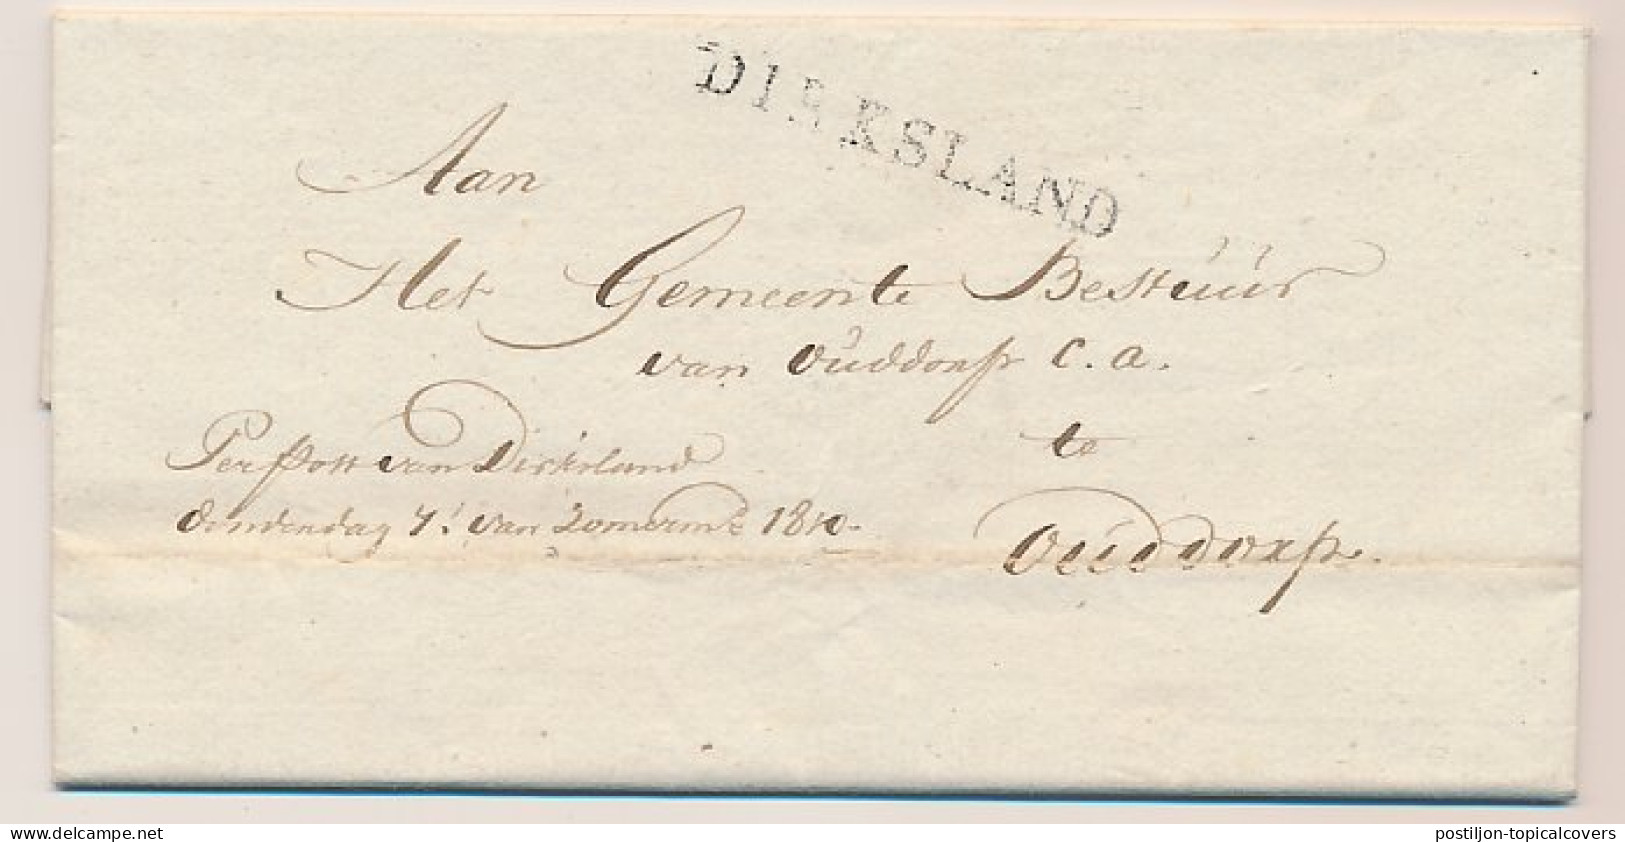 DIRKSLAND
Aan
Het Gemeente Bestuur
van Ouddorp c. a.
te
Per Post van Dirksland
donderdag 7: van Zomermd 1810
Ouddorp.
delcampe.net
postiljon-topicalcovers